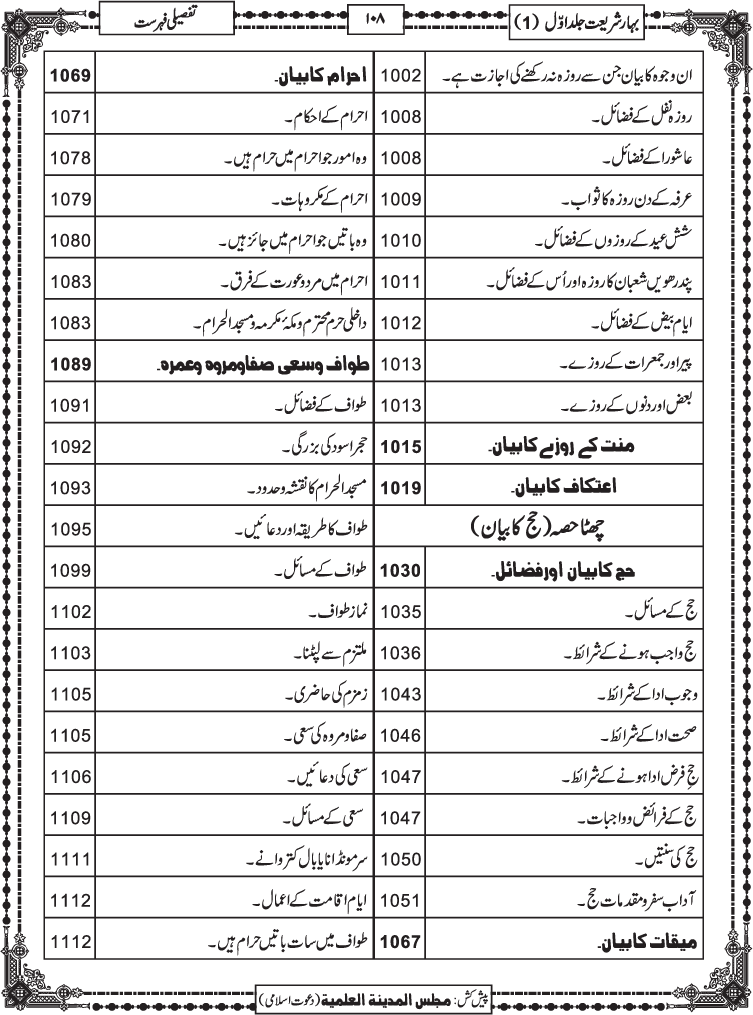 بہار شریعت جلد اوّل (1)
۱۰۸
تفصیلی فہرست
ان وجوہ کا بیان جن سے روزہ نہ رکھنے کی اجازت ہے۔ 1002
روزہ نفل کے فضائل۔ 1008
عاشورا کے فضائل۔ 1008
عرفہ کے دن روزہ کا ثواب۔ 1009
شش عید کے روزوں کے فضائل۔ 1010
پندرھویں شعبان کا روزہ اور اُس کے فضائل۔ 1011
ایام بیض کے فضائل۔ 1012
پیر اور جمعرات کے روزے۔ 1013
بعض اور دنوں کے روزے۔ 1013
منت کے روزے کا بیان۔ 1015
اعتکاف کا بیان۔ 1019
چھٹا حصہ (حج کا بیان)
حج کا بیان اور فضائل۔ 1030
حج کے مسائل۔ 1035
حج واجب ہونے کے شرائط۔ 1036
وجوب ادا کے شرائط۔ 1043
صحت ادا کے شرائط۔ 1046
حجِ فرض ادا ہونے کے شرائط۔ 1047
حج کے فرائض و واجبات۔ 1047
حج کی سنتیں۔ 1050
آداب سفر و مقدمات حج۔ 1051
میقات کا بیان۔ 1067
احرام کا بیان۔ 1069
احرام کے احکام۔ 1071
وہ امور جو احرام میں حرام ہیں۔ 1078
احرام کے مکروہات۔ 1079
وہ باتیں جو احرام میں جائز ہیں۔ 1080
احرام میں مرد و عورت کے فرق۔ 1083
داخلی حرم محترم و مکۂ مکرمہ و مسجد الحرام۔ 1083
طواف و سعی صفا و مروہ و عمرہ۔ 1089
طواف کے فضائل۔ 1091
حجر اسود کی بزرگی۔ 1092
مسجد الحرام کا نقشہ و حدود۔ 1093
طواف کا طریقہ اور دعائیں۔ 1095
طواف کے مسائل۔ 1099
نماز طواف۔ 1102
ملتزم سے لپٹنا۔ 1103
زمزم کی حاضری۔ 1105
صفا و مروہ کی سعی۔ 1105
سعی کی دعائیں۔ 1106
سعی کے مسائل۔ 1109
سر مونڈانا یا بال کتروانے۔ 1111
ایام اقامت کے اعمال۔ 1112
طواف میں سات باتیں حرام ہیں۔ 1112
پیش کش: مجلس المدینة العلمیة (دعوت اسلامی)